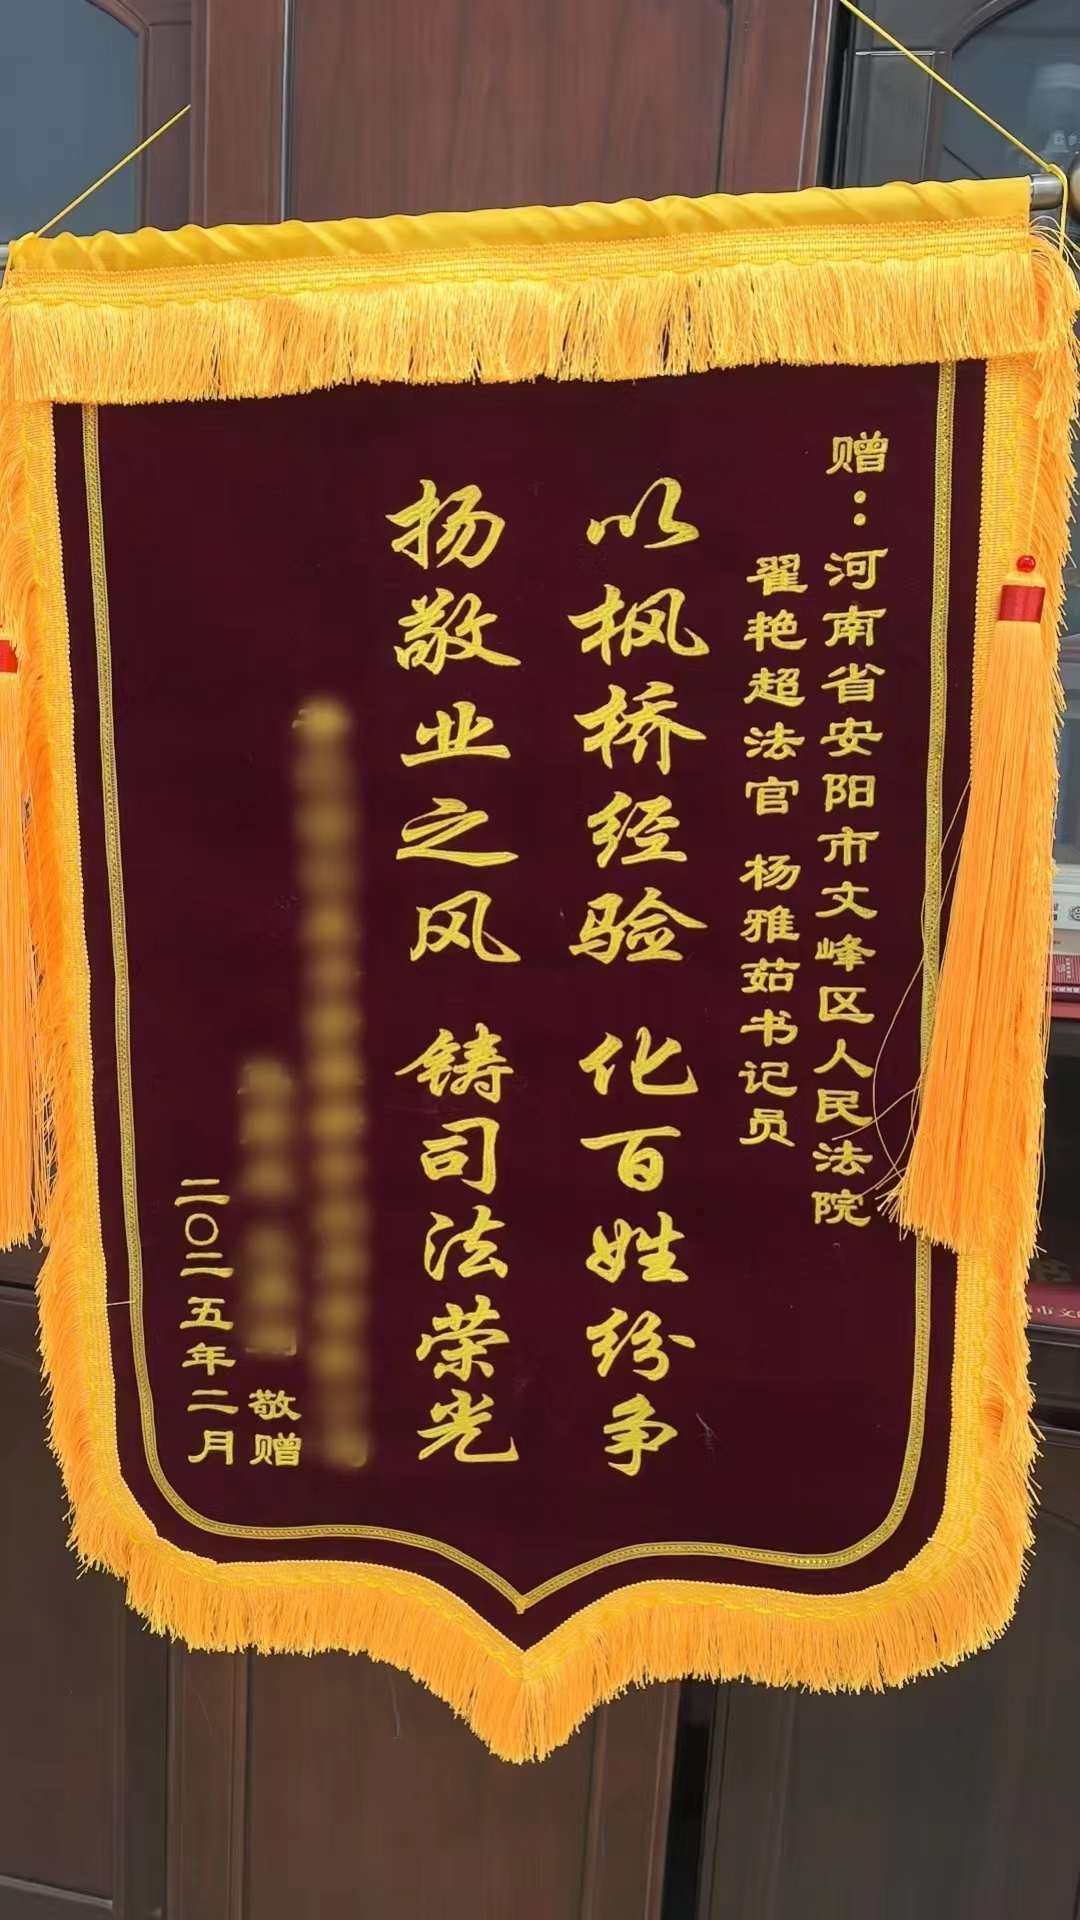 赠：河南省安阳市文峰区人民法院
翟艳超法官 杨雅茹书记员
以枫桥经验 化百姓纷争
扬敬业之风 铸司法荣光
敬赠
二〇二五年二月